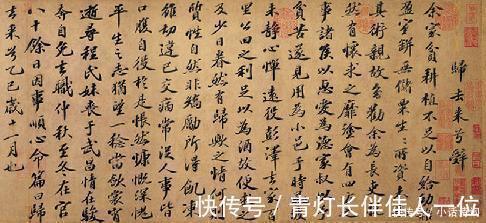 歸去來兮辭
余家貧耕植不足以自給幼
盈室缾無儲粟生〻所資
其術親故多勸余為長吏
然有懷求之靡途會有四
事諸侯以惠愛為德家叔以
貧苦遂見用為小邑于時
未靜心憚遠役彭澤去家
里公田之利足以為酒故便求
及少日眷然有歸歟之情何
質性自然非矯勵所得飢凍
雖切違己交病嘗從人事皆
口腹自役於是悵然慷慨深愧
平生之志猶望一稔當斂裳宵
逝尋程氏妹喪于武昌情在駿
奔自免去職仲秋至冬在官
八十餘日因事順心命篇曰歸
去來兮乙巳歲十一月也
快传号/青灯长伴佳人一位